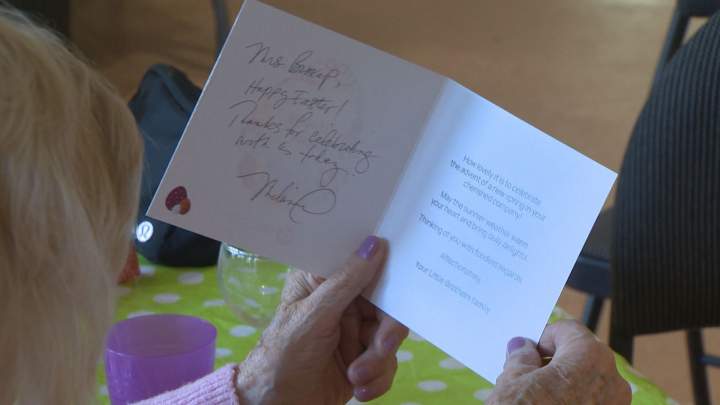 Mrs.
Happy Easter!
Thanks for celebrating
with us today
How lovely it is to celebrate
the advent of a new spring in your
cherished company!
May the sunnier weather warm
your heart and bring daily delights.
Thinking of you with fondest regards.
Affectionately,
Your Little Brothers Family